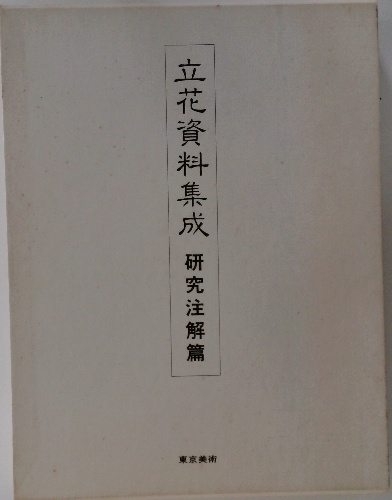 立花資料集成 研究注解篇
東京美術